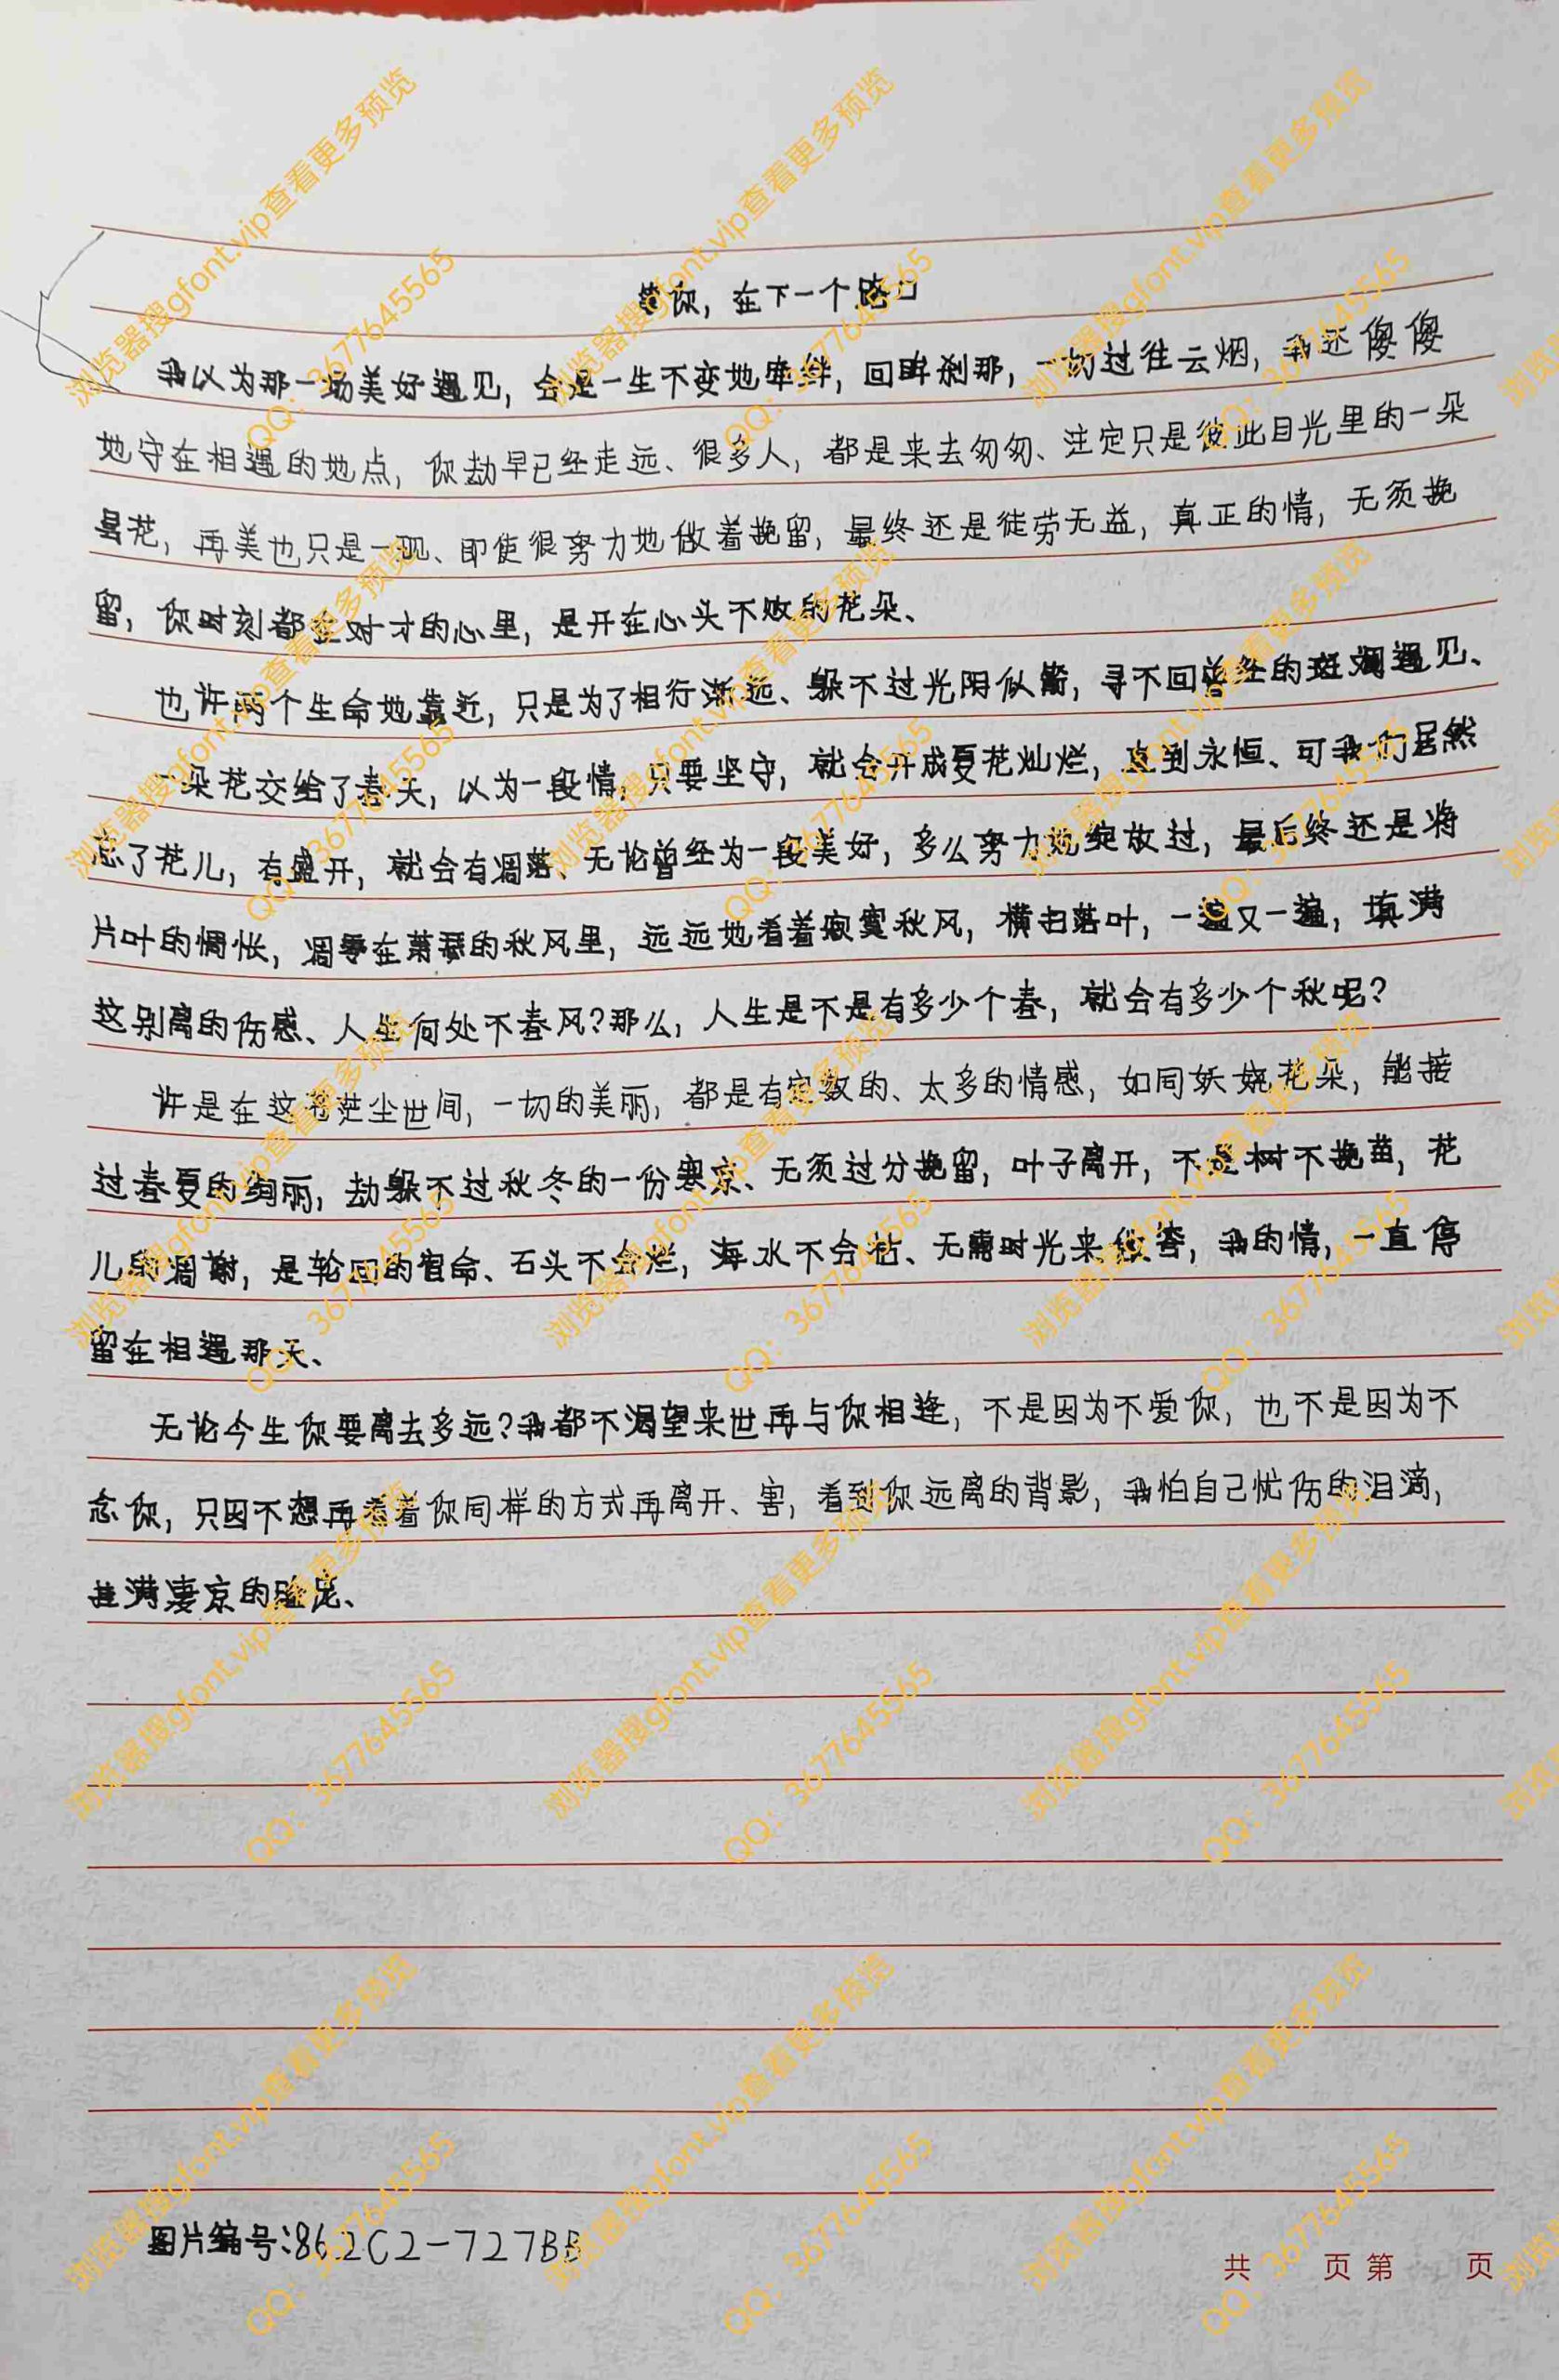 等你，在下一个路口
我以为那一场美好遇见，会是一生不变地牵绊，回眸刹那，一切过往云烟，我还傻傻
地守在相遇的地点，你劫早已经走远、很多人，都是来去匆匆、注定只是彼此目光里的一朵
昙花，再美也只是一现、即使很努力地做着挽留，最终还是徒劳无益，真正的情，无须挽
留，你时刻都在对才的心里，是开在心头不败的花朵、
也许两个生命地靠近，只是为了相行渐远、躲不过光阴似箭，寻不回曾经的斑斓遇见、
一朵花交给了春天，以为一段情，只要坚守，就会开成夏花灿烂，直到永恒、可我们居然
忘了花儿，有盛开，就会有凋落、无论曾经为一段美好，多么努力地绽放过，最后终还是将
片叶的惆怅，凋零在萧瑟的秋风里，远远地看着寂寞秋风，横扫落叶，一遍又一遍，填满
这别离的伤感、人生何处不春风？那么，人生是不是有多少个春，就会有多少个秋呢？
许是在这苍茫尘世间，一切的美丽，都是有定数的、太多的情感，如同妖娆花朵，能接
过春夏的绚丽，劫躲不过秋冬的一份寒凉、无须过分挽留，叶子离开，不是树不挽苗，花
儿的凋谢，是轮回的宿命、石头不会烂，海水不会枯、无需时光来做答，我的情，一直停
留在相遇那天、
无论今生你要离去多远？我都不渴望来世再与你相逢，不是因为不爱你，也不是因为不
念你，只因不想再看着你同样的方式再离开、害，看到你远离的背影，我怕自己忧伤的泪滴，
挂满凄凉的脸庞、
图片编号：862C2-727BB
共 页 第 页
浏览器搜gfont.vip查看更多预览
QQ：3677645565